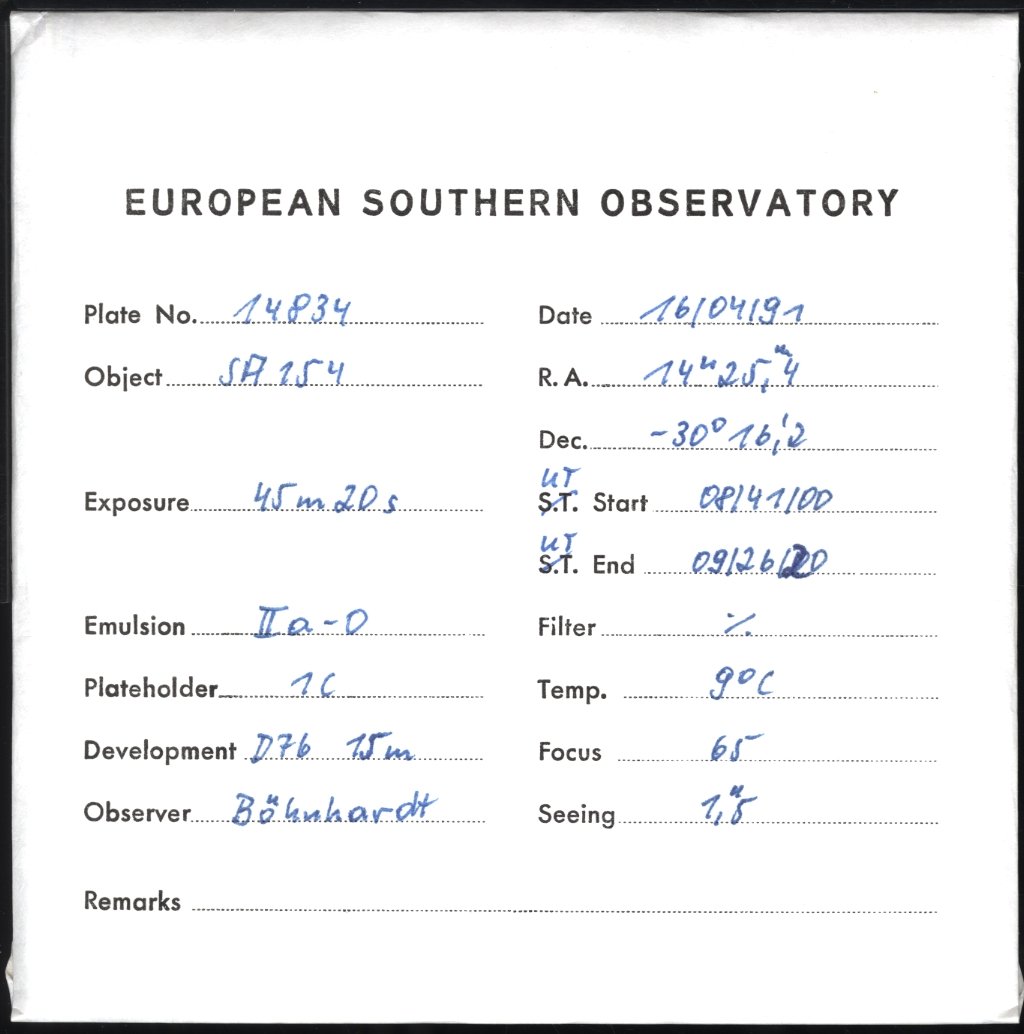 EUROPEAN SOUTHERN OBSERVATORY
Plate No. 14834 Date 16/04/91
Object SA 154 R.A. 14ʰ25,ᵐ4
Dec. -30° 16,'2
UT UT
Exposure 45m 20s S.T. Start 08/41/00
S.T. End 09/26/20
Emulsion IIa-O Filter ·/.
Plateholder 1C Temp. 9°C
Development D76 15m Focus 65
Observer Böhnhardt Seeing 1,"5
Remarks